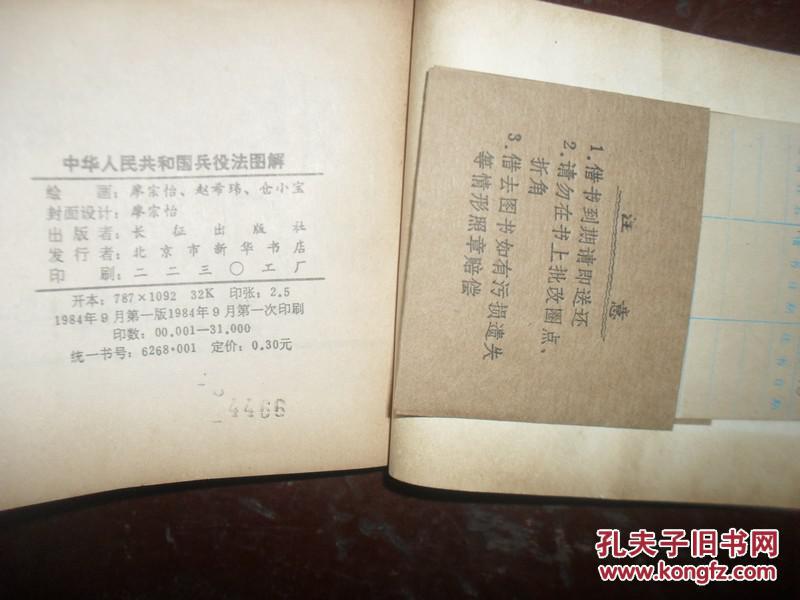 中华人民共和国兵役法图解
绘 画：廖宗怡、赵希玮、仓小宝
封面设计：廖宗怡
出版者：长征出版社
发行者：北京市新华书店
印 刷：二二三〇工厂
开本：787×1092 32K 印张：2.5
1984年9月第一版1984年9月第一次印刷
印数：00.001—31.000
统一书号：6268·001 定价：0.30元
4466
注意
1.借书到期请即送还
2.请勿在书上批改圈点、
折角
3.借去图书如有污损遗失
等情形照章赔偿
孔夫子旧书网
www.kongfz.com